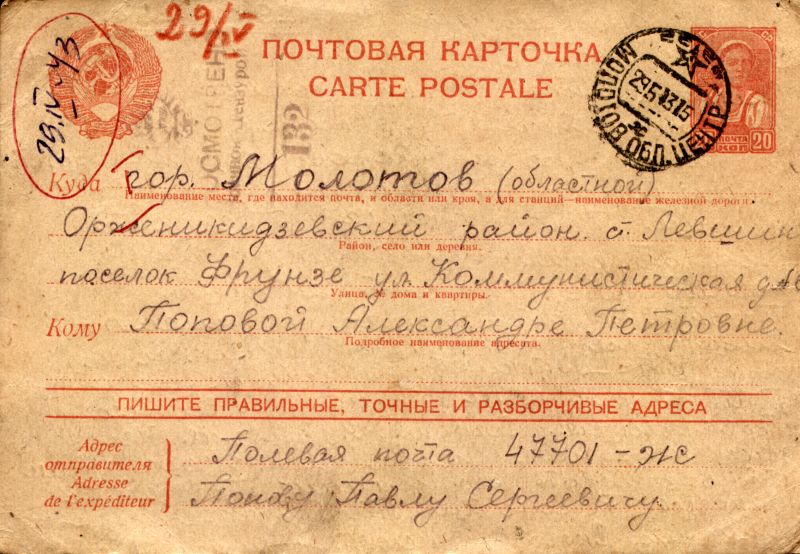 29/IV
29.IV-43
ПОЧТОВАЯ КАРТОЧКА
CARTE POSTALE
132
29 5 43 15
МОЛОТОВ ОБЛ. ЦЕНТР
ПОЧТА
20
КОП
Куда гор. Молотов (областной)
Наименование места, где находится почта, и области или края, а для станций—наименование железной дороги
Орженикидзевский район. ст. Левшин
Район, село или деревня.
поселок Фрунзе ул. Коммунистическая
Улица, № дома и квартиры.
Кому Поповой Александре Петровне.
Подробное наименование адресата.
ПИШИТЕ ПРАВИЛЬНЫЕ, ТОЧНЫЕ И РАЗБОРЧИВЫЕ АДРЕСА
Адрес
отправителя
Adresse
de l'expéditeur
Полевая почта 47701-Ж
Попову Павлу Сергеевичу